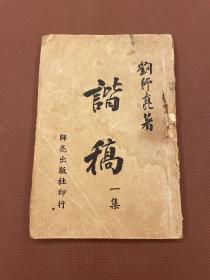 劉師亮著
諧稿
一集
師亮出版社印行